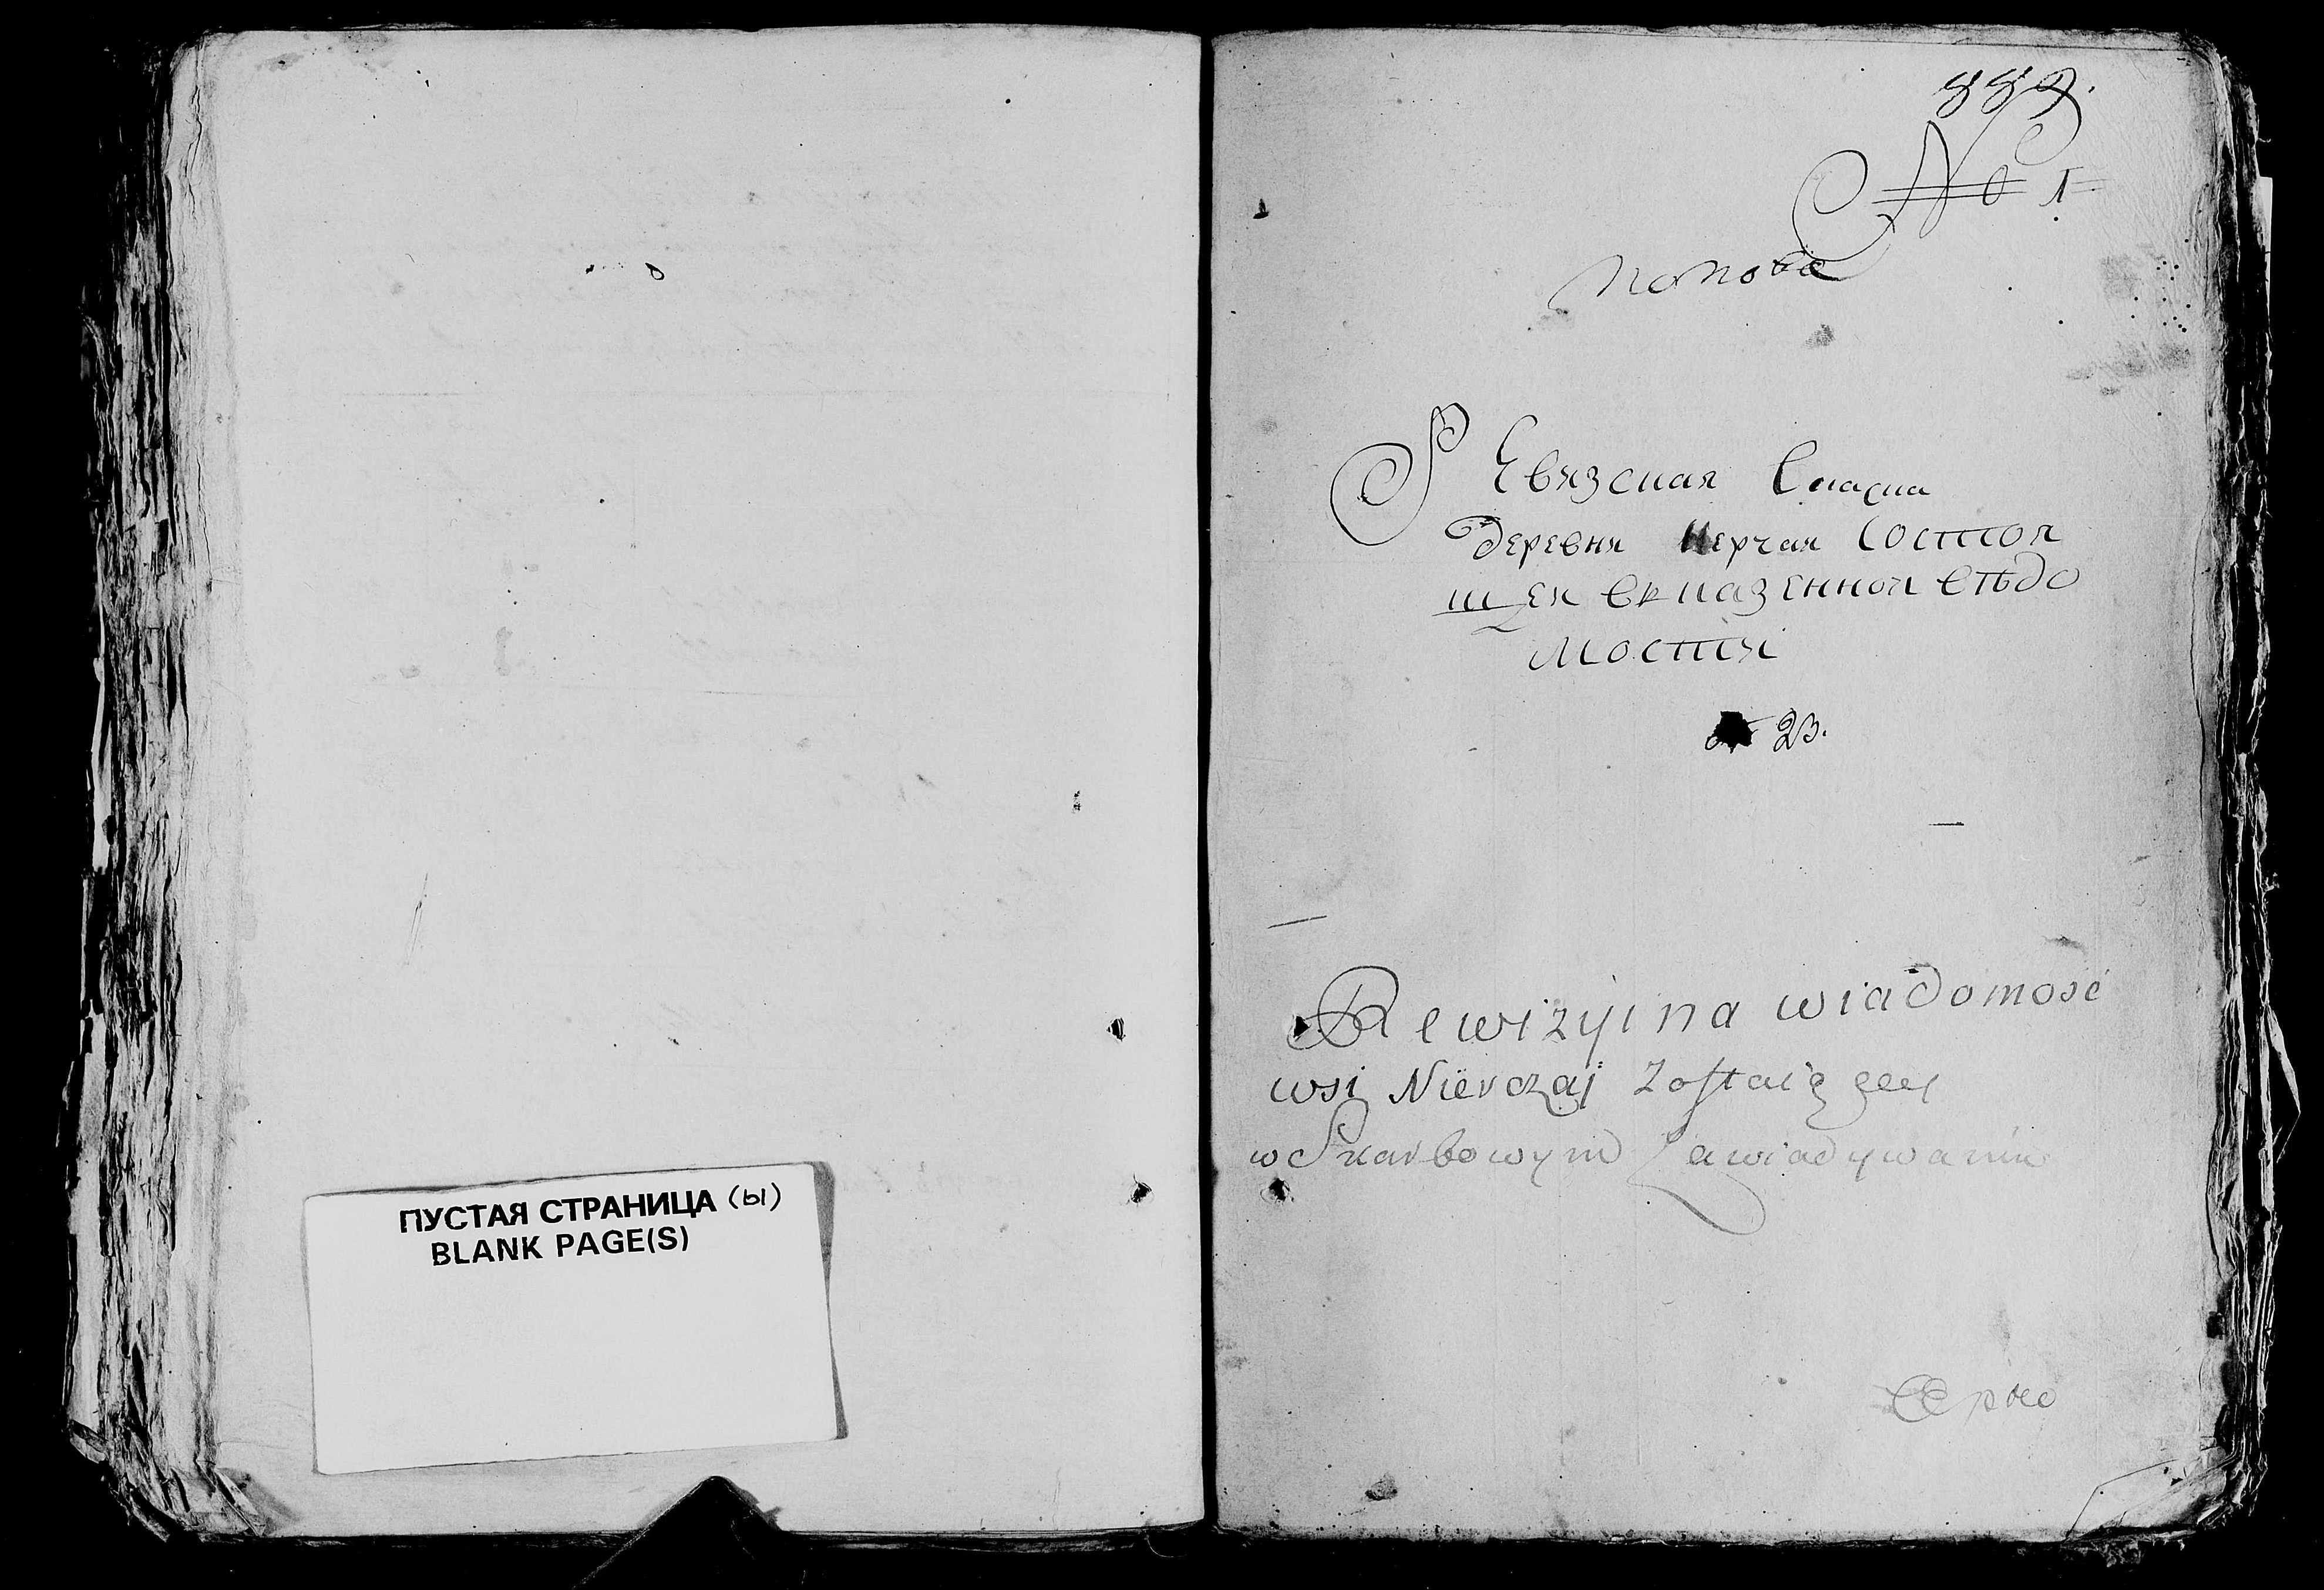 ПУСТАЯ СТРАНИЦА (ы)
BLANK PAGE(S)
889.
No 1
Ревизская Сказка
деревни Нерчая Состоя
щея вказенной вѣдо
мости
23.
Rewizyina wiadomość
wsi Nierczaj Zostaiącey
w Skarbowym Zawiadywaniu